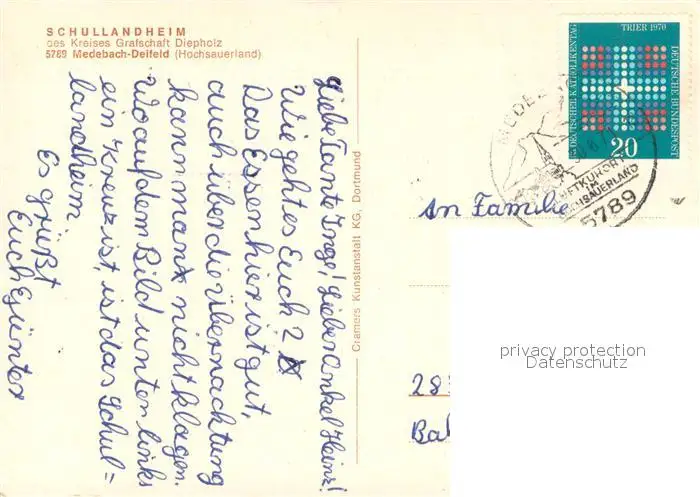 SCHULLANDHEIM
des Kreises Grafschaft Diepholz
5789 Medebach-Deifeld (Hochsauerland)
Liebe Tante Inge! Lieber Onkel Heinz!
Wie geht es Euch 2
Das Essen hier ist gut,
auch über die Übernachtung
kann man nicht klagen.
Wo auf dem Bild unten links
ein Kreuz ist, ist das Schul=
landheim
Es grüßt
Euch Günter
Cramers Kunstanstalt KG, Dortmund
TRIER 1970
83. DEUTSCHER KATHOLIKENTAG
DEUTSCHE BUNDESPOST
20
LUFTKURORT
IM
HOCHSAUERLAND
5789
An Familie
privacy protection
Datenschutz
28
Ba